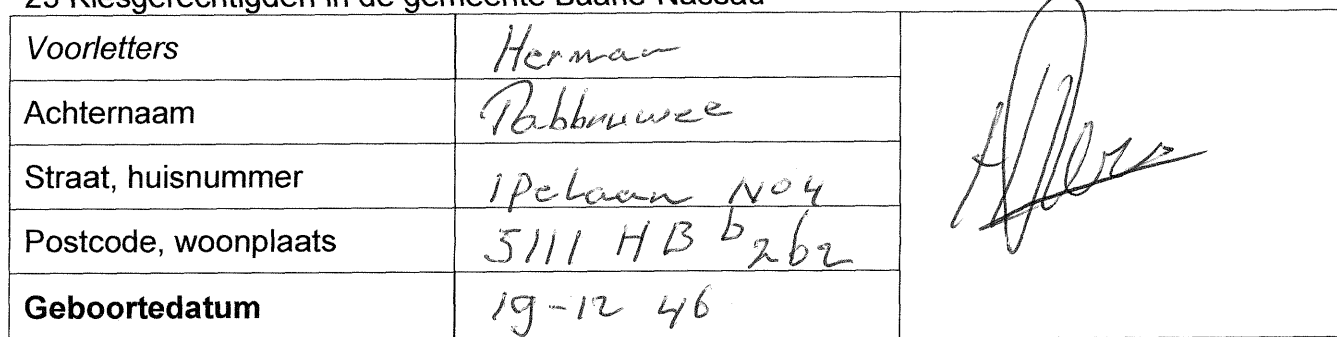 25 Kiesgerechtigden in de gemeente Baarle-Nassau
Voorletters Herman
Achternaam
Straat, huisnummer No 4
Postcode, woonplaats 5111 HB
Geboortedatum 19-12 46